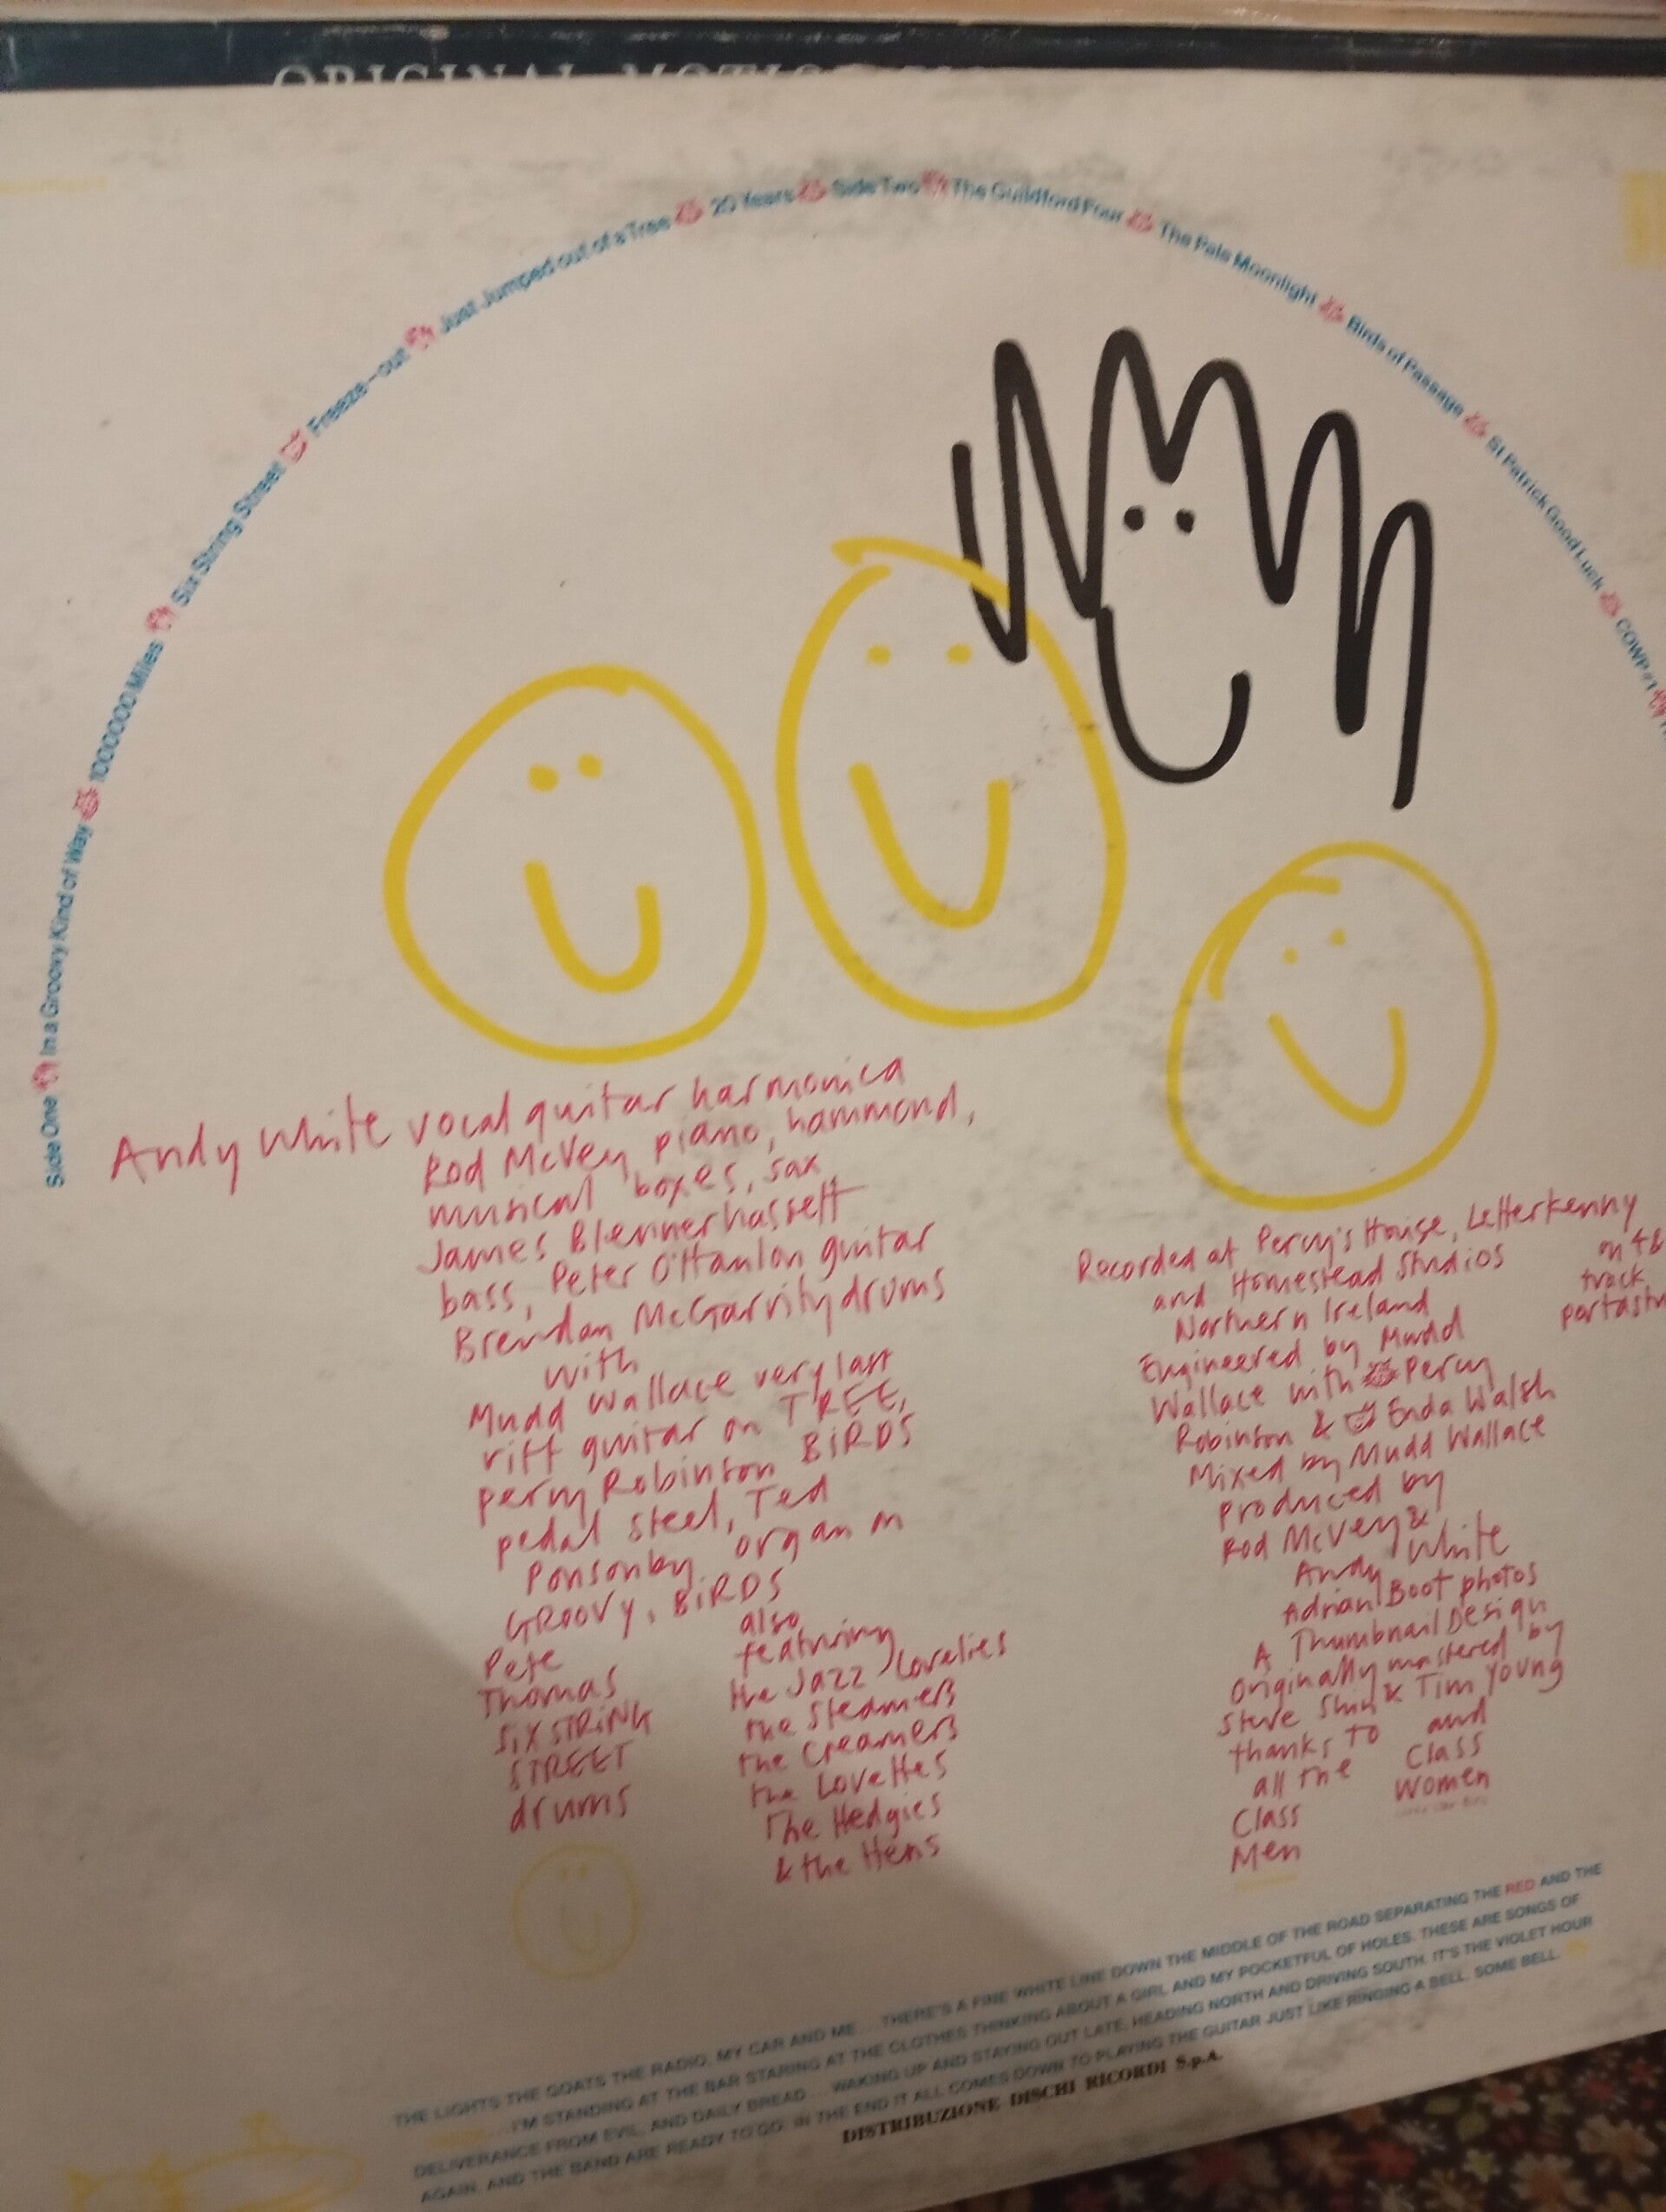 ORIGINAL MOTION
Side One In a Groovy Kind of Way 1000000 Miles Six String Street Freeze-out Just Jumped out of a Tree 20 Years Side Two The Guildford Four The Pale Moonlight Birds of Passage St Patrick Good Luck COWP#1
Andy White vocal guitar harmonica
Rod McVey piano, hammond,
musical boxes, sax
James Blennerhassett
bass, Peter O'Hanlon guitar
Brendan McGarrity drums
with
Mudd Wallace very last
riff guitar on TREE,
Percy Robinson BiRDS
pedal steel, Ted
Ponsonby organ on
GROOVY, BiRDS
Pete
Thomas
SiX STRiNG
STREET
drums
also
featuring
the Jazz Lovelies
the Steamers
the Creamers
the Lovettes
The Hedgies
& the Hens
Recorded at Percy's House, Letterkenny
on 48
track
and Homestead Studios
Northern Ireland
Engineered by Mudd
Wallace with Percy
Robinson & Enda Walsh
Mixed by Mudd Wallace
produced by
Rod McVey &
Andy White
Adrian Boot photos
A Thumbnail Design
Originally mastered by
Steve & Tim Young
thanks to
all the
Class
Men
and
Class
Women
THE LIGHTS THE GOATS THE RADIO, MY CAR AND ME... THERE'S A FINE WHITE LINE DOWN THE MIDDLE OF THE ROAD SEPARATING THE RED AND THE
...I'M STANDING AT THE BAR STARING AT THE CLOTHES THINKING ABOUT A GIRL AND MY POCKETFUL OF HOLES. THESE ARE SONGS OF
DELIVERANCE FROM EVIL, AND DAILY BREAD... WAKING UP AND STAYING OUT LATE, HEADING NORTH AND DRIVING SOUTH. IT'S THE VIOLET HOUR
AGAIN, AND THE BAND ARE READY TO GO. IN THE END IT ALL COMES DOWN TO PLAYING THE GUITAR JUST LIKE RINGING A BELL. SOME BELL.
DISTRIBUZIONE DISCHI RICORDI S.p.A.